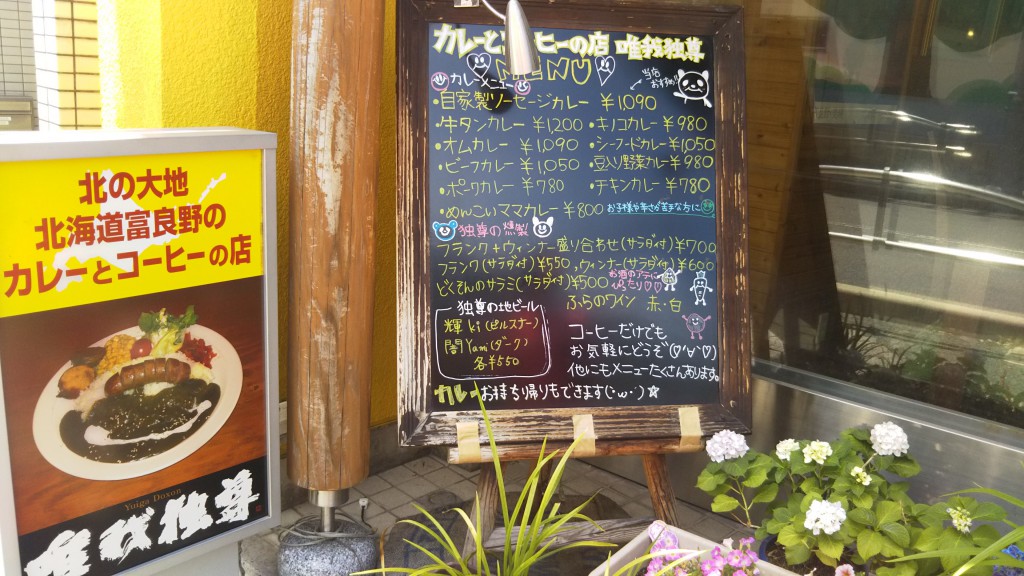 北の大地
北海道富良野の
カレーとコーヒーの店
Yuiga Doxon
唯我独尊
カレーとコーヒーの店 唯我独尊
MENU
カレーメニュー
当店おすすめ!!
・自家製ソーセージカレー ¥1,090
・牛タンカレー ¥1200 ・キノコカレー ¥980
・オムカレー ¥1,090 ・シーフードカレー ¥1,050
・ビーフカレー ¥1,050 ・豆入り野菜カレー ¥980
・ポークカレー ¥780 ・チキンカレー ¥780
・めんこいママカレー ¥800 お子様や辛さが苦手な方に
独尊の燻製
フランク+ウィンナー盛り合わせ(サラダ付)¥1700
フランク(サラダ付)¥550 ・ウィンナー(サラダ付)¥600
どくそんのサラミ(サラダ付)¥500
お酒のアテにぴったり♡♡
ふらのワイン 赤・白
独尊の地ビール
輝 ki (ピルスナー)
闇 Yami (ダーク)
各¥550
コーヒーだけでも
お気軽にどうぞ(♡'∀'♡)
他にもメニューたくさんあります。
カレーお持ち帰りもできます(・ω・)☆